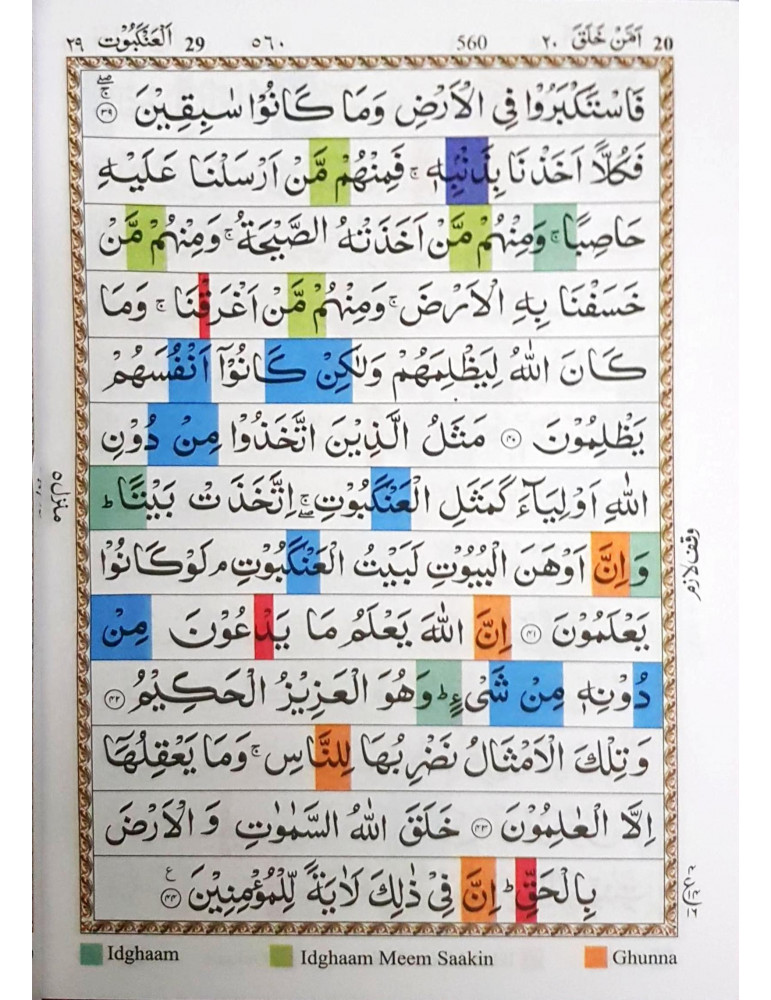 20 اَمَّنْ خَلَقَ ٢٠ 560 ٥٦٠ 29 اَلْعَنْكَبُوْت ٢٩
فَاسْتَكْبَرُوْا فِى الْاَرْضِ وَمَا كَانُوْا سٰبِقِيْنَ ۚۖ ﴿۳۹﴾
فَكُلًّا اَخَذْنَا بِذَنْۢبِهٖ ۚ فَمِنْهُمْ مَّنْ اَرْسَلْنَا عَلَيْهِ
حَاصِبًا ۚ وَمِنْهُمْ مَّنْ اَخَذَتْهُ الصَّيْحَةُ ۚ وَمِنْهُمْ مَّنْ
خَسَفْنَا بِهِ الْاَرْضَ ۚ وَمِنْهُمْ مَّنْ اَغْرَقْنَا ۚ وَمَا
كَانَ اللّٰهُ لِيَظْلِمَهُمْ وَلٰكِنْ كَانُوْۤا اَنْفُسَهُمْ
يَظْلِمُوْنَ ﴿۴۰﴾ مَثَلُ الَّذِيْنَ اتَّخَذُوْا مِنْ دُوْنِ
اللّٰهِ اَوْلِيَآءَ كَمَثَلِ الْعَنْكَبُوْتِ ۖۚ اِتَّخَذَتْ بَيْتًا ؕ
وَاِنَّ اَوْهَنَ الْبُيُوْتِ لَبَيْتُ الْعَنْكَبُوْتِ ۘ لَوْ كَانُوْا
يَعْلَمُوْنَ ﴿۴۱﴾ اِنَّ اللّٰهَ يَعْلَمُ مَا يَدْعُوْنَ مِنْ
دُوْنِهٖ مِنْ شَىْءٍ ؕ وَهُوَ الْعَزِيْزُ الْحَكِيْمُ ﴿۴۲﴾
وَتِلْكَ الْاَمْثَالُ نَضْرِبُهَا لِلنَّاسِ ۚ وَمَا يَعْقِلُهَاۤ
اِلَّا الْعٰلِمُوْنَ ﴿۴۳﴾ خَلَقَ اللّٰهُ السَّمٰوٰتِ وَالْاَرْضَ
بِالْحَقِّ ؕ اِنَّ فِىْ ذٰلِكَ لَاٰيَةً لِّلْمُؤْمِنِيْنَ ﴿۴۴﴾ ع
منزل ٥
وقف لازم
Idghaam Idghaam Meem Saakin Ghunna